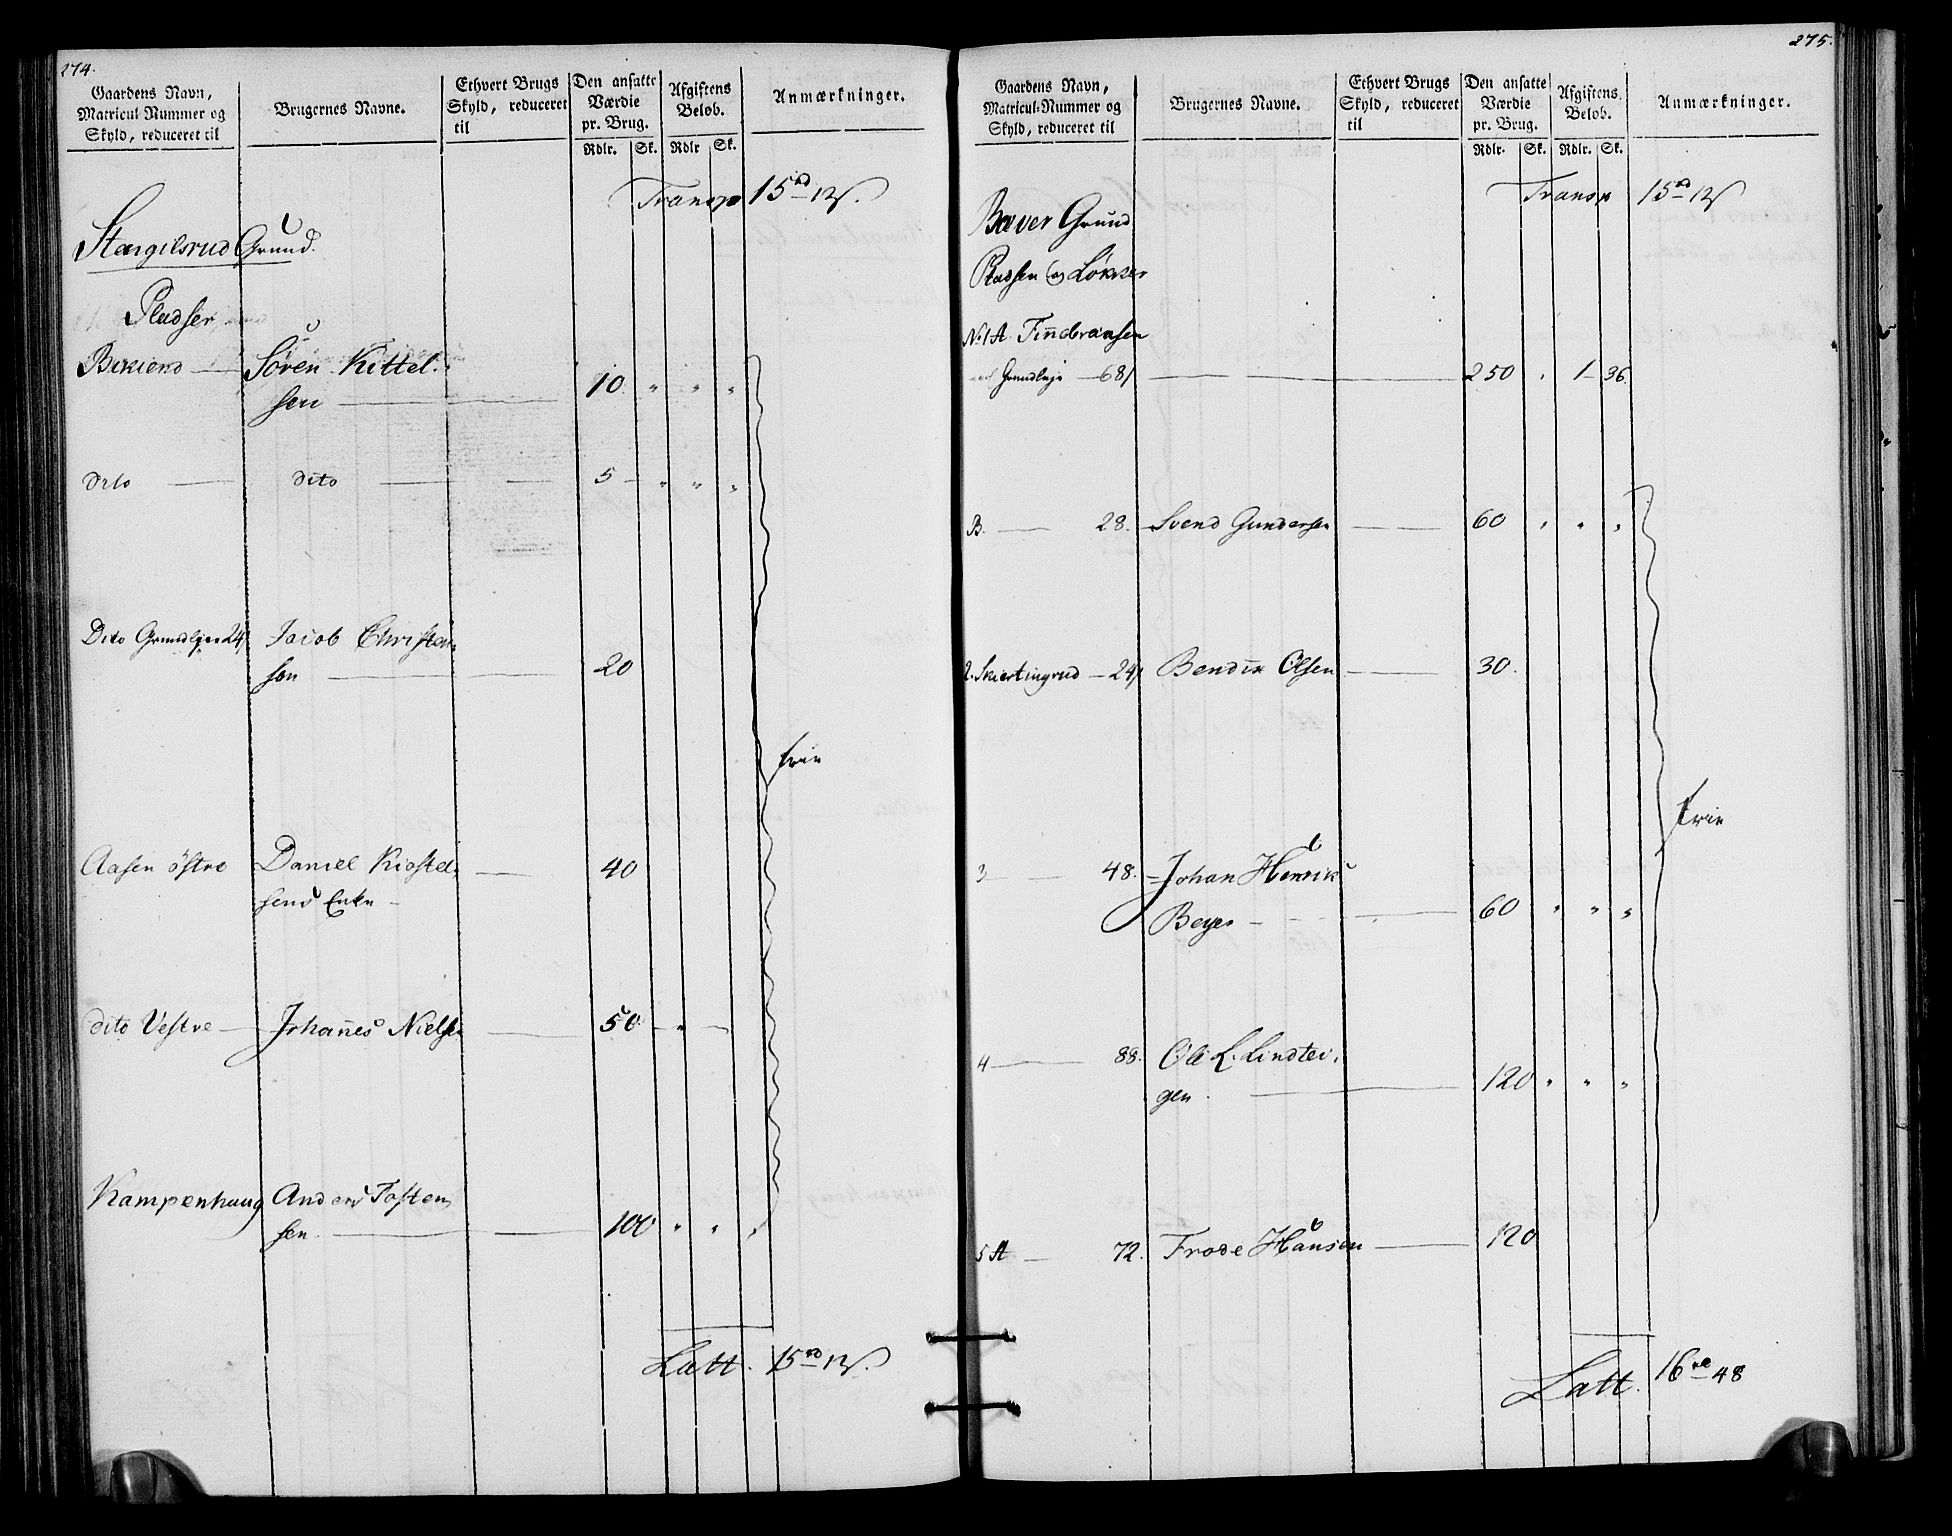 274.
Gaardens Navn,
Matricul-Nummer og
Skyld, reduceret til
Brugernes Navne.
Ethvert Brugs
Skyld, reduceret
til
Den ansatte
Værdie
pr. Brug.
Afgiftens
Beløb.
Anmærkninger.
Rdlr. Sk. Rdlr Sk.
Transp 15 rd 12 s.
Stengilsrud Grund.
Pladser
Søren Kittel-
sen 10 " " "
dito dito 5 " " "
Dito Grundleje 24 Jacob Christen-
sen 20
frie
Aasen østre Daniel Kiøstel- 40
sens Enke
dito Vestre Johannes Nielsen 50 "
Kampenhaug Anders Tosten
sen 100 " " "
Latt. 15 rd 12 s.
275.
Gaardens Navn,
Matricul-Nummer og
Skyld, reduceret til
Brugernes Navne.
Ethvert Brugs
Skyld, reduceret
til
Den ansatte
Værdie
pr. Brug.
Afgiftens
Beløb.
Anmærkninger.
Rdlr. Sk. Rdlr. Sk.
Transp 15 rd 12 s
Bæver Grund
Pladsen og Løkker
No 1 A
Grundleje 68 250 " 1 36.
B. 28. Svend Gundersen 60 " " "
2. Skiertingrud 24 Bendix Olsen 30.
frie
3 48. Johan Henrik
Beyer 60 " " "
4 88. Ole L. Lindtei-
gen 120 " " "
5 A 72. Frode Hansen 120
Latt. 16 rd 48